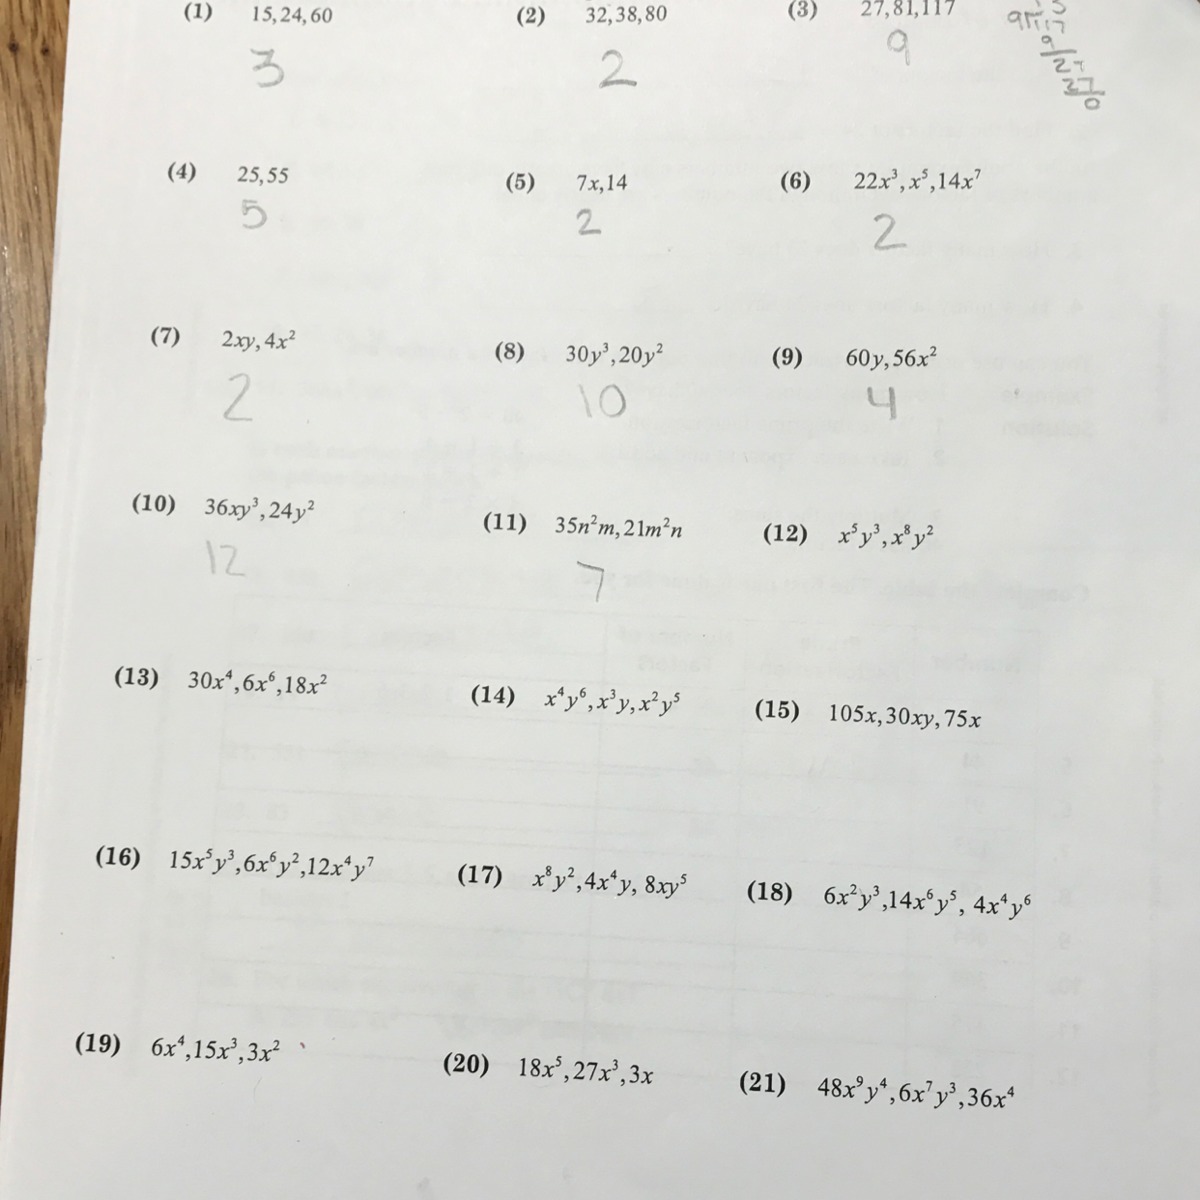 (1) 15,24,60 (2) 32,38,80 (3) 27,81,117
3 2 9
(4) 25,55 (5) 7x,14 (6) 22x³,x⁵,14x⁷
5 2 2
(7) 2xy,4x² (8) 30y³,20y² (9) 60y,56x²
2 10 4
(10) 36xy³,24y² (11) 35n²m,21m²n (12) x⁵y³,x⁸y²
12 7
(13) 30x⁴,6x⁶,18x² (14) x⁴y⁶,x³y,x²y⁵ (15) 105x,30xy,75x
(16) 15x⁵y³,6x⁶y²,12x⁴y⁷ (17) x⁸y²,4x⁴y, 8xy⁵ (18) 6x²y³,14x⁶y⁵, 4x⁴y⁶
(19) 6x⁴,15x³,3x² (20) 18x⁵,27x³,3x (21) 48x⁹y⁴,6x⁷y³,36x⁴